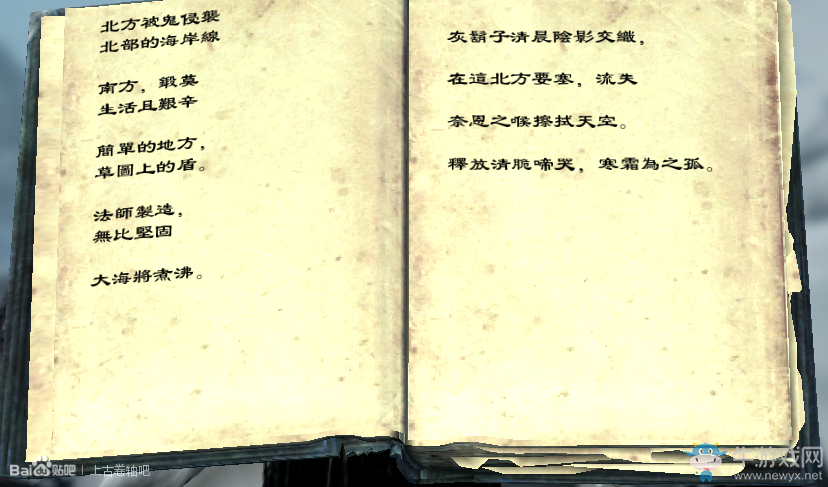 北方被鬼侵襲
北部的海岸線
南方，鍛莫
生活且艱辛
簡單的地方，
草圖上的盾。
法師製造，
無比堅固
大海將煮沸。
灰鬍子清晨陰影交織，
在這北方要塞，流失
奈恩之喉擦拭天空。
釋放清脆啼哭，寒霜為之孤。
Bai度贴吧 | 上古卷轴吧
牛游戏网
www.newyx.net